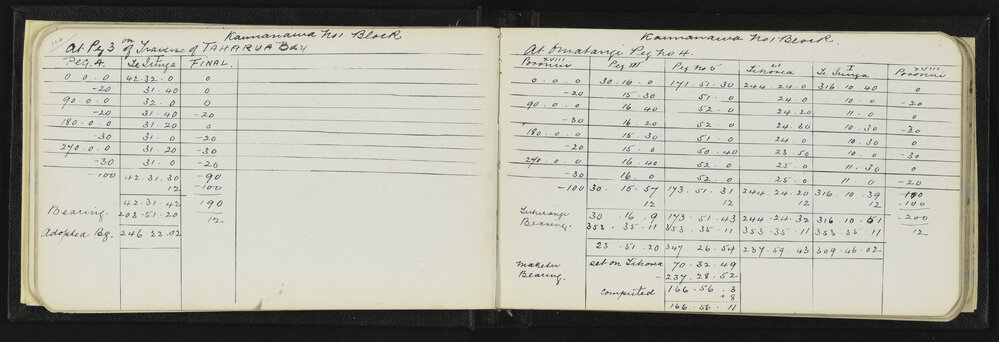 Kaimanawa No 1 Block
At Peg 3 on of Traverse of TAHARUA Bdy
PEG. A. Te Iringa FINAL.
0 . 0 . 0 42.32.0 0
-20 31.40 0
90.0.0 32.0 0
-20 31.40 -20
180.0.0 31.20 0
-30 31.0 -20
270.0.0 31.20 -30
-30 31.0 -20
-100 42.31.30 -90
12 -100
42.31.42 190
Bearing. 203.51.20 12
Adopted Bg. 246 23.02
Kaimanawa No 1 Block.
At Omatangi Peg No 4.
XVIII LI I XVIII
Poronui Peg III Peg No 5 Tikorea Te Iringa Poronui
0 . 0 . 0 30.16.0 171.51.30 244.24.0 316.10.40 0
-20 15.30 51.0 24.0 10.0 -20
90.0.0 16.40 52.0 24.20 11.0 0
-30 16.20 52.0 24.30 10.30 -20
180.0.0 15.30 51.0 24.0 10.30 0
-20 15.0 50.40 23.50 10.0 -30
270.0.0 16.40 52.0 25.0 11.30 0
-30 16.0 52.0 25.0 11.0 -20
-100 30.15.57 173.51.31 244.24.20 316.10.39 -100
12 12 12 12 -100
30.16.9 173.51.43 244.24.32 316.10.51 -200
Bearing. 353.35.11 353.35.11 353.35.11 353.35.11 12
23.51.20 347.26.54 237.59.43 309.46.02
Maketu set on Tikorea 70.32.49
Bearing. -237.28.52
computed 166.56.3
+8
166.56.11